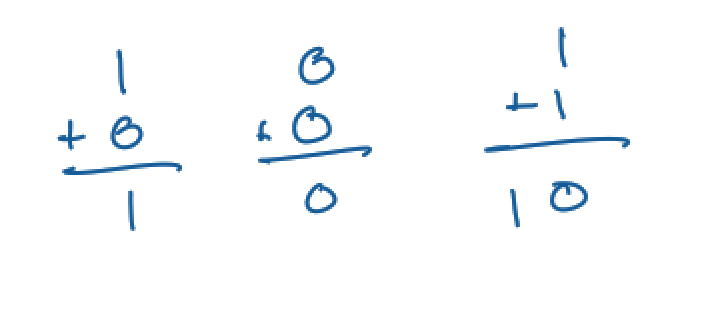 1 0 1
+ 0 + 0 + 1
1 0 10